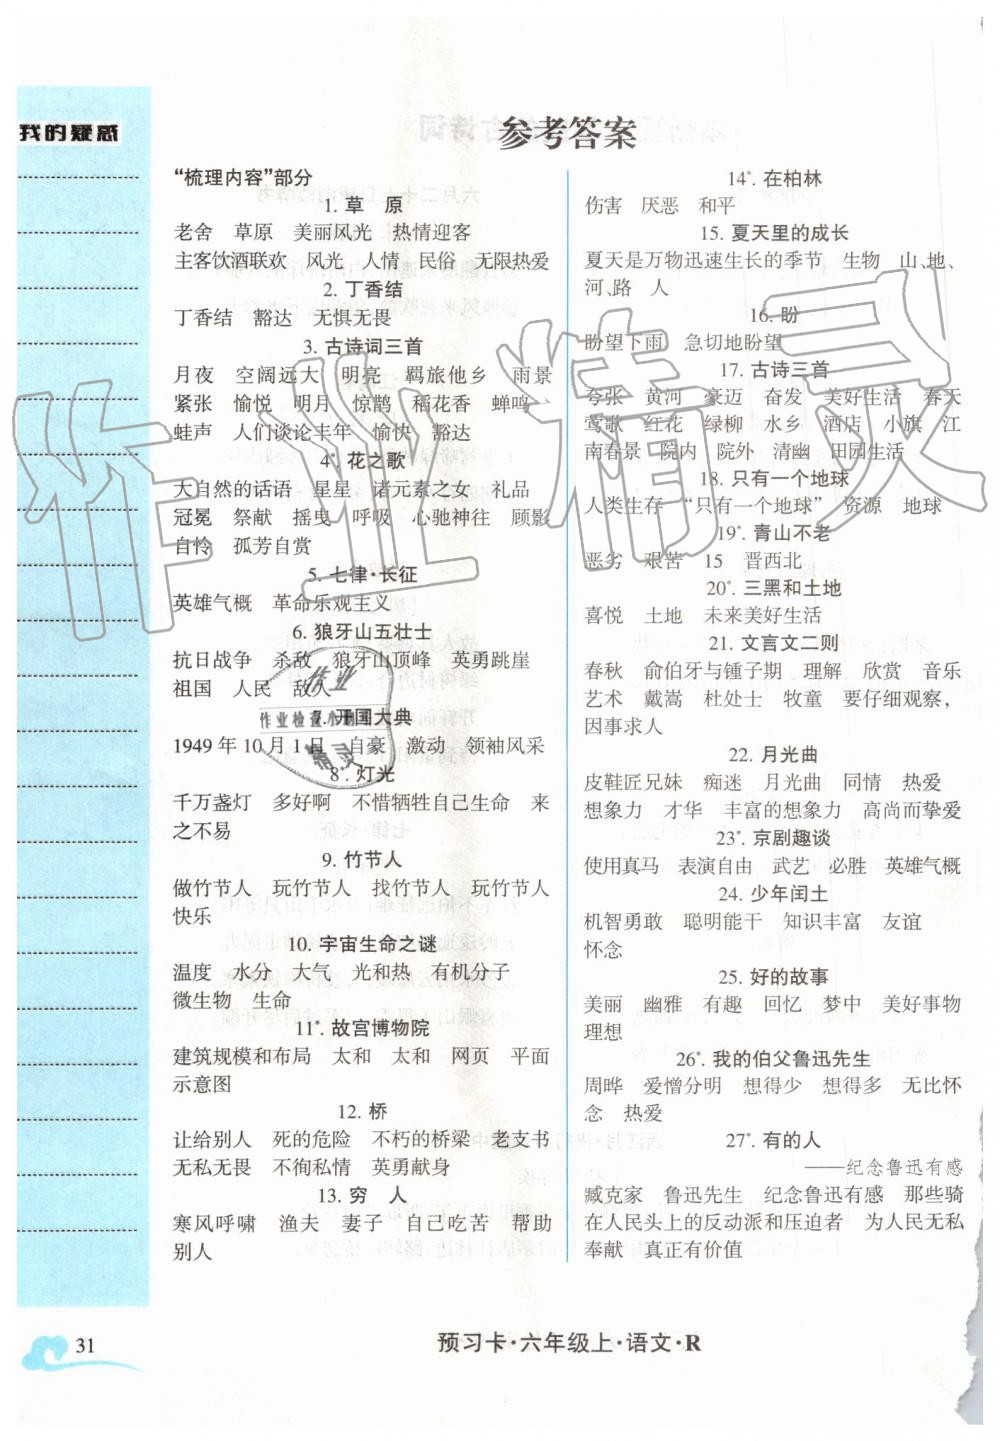 我的疑惑
参考答案
“梳理内容”部分
1. 草　原
老舍　草原　美丽风光　热情迎客
主客饮酒联欢　风光　人情　民俗　无限热爱
2. 丁香结
丁香结　豁达　无惧无畏
3. 古诗词三首
月夜　空阔远大　明亮　羁旅他乡　雨景
紧张　愉悦　明月　惊鹊　稻花香　蝉鸣
蛙声　人们谈论丰年　愉快　豁达
4*. 花之歌
大自然的话语　星星　诸元素之女　礼品
冠冕　祭献　摇曳　呼吸　心驰神往　顾影
自怜　孤芳自赏
5. 七律·长征
英雄气概　革命乐观主义
6. 狼牙山五壮士
抗日战争　杀敌　狼牙山顶峰　英勇跳崖
祖国　人民　敌人
7. 开国大典
1949 年 10 月 1 日　自豪　激动　领袖风采
8*. 灯光
千万盏灯　多好啊　不惜牺牲自己生命　来
之不易
9. 竹节人
做竹节人　玩竹节人　找竹节人　玩竹节人
快乐
10. 宇宙生命之谜
温度　水分　大气　光和热　有机分子
微生物　生命
11*. 故宫博物院
建筑规模和布局　太和　太和　网页　平面
示意图
12. 桥
让给别人　死的危险　不朽的桥梁　老支书
无私无畏　不徇私情　英勇献身
13. 穷　人
寒风呼啸　渔夫　妻子　自己吃苦　帮助
别人
14*. 在柏林
伤害　厌恶　和平
15. 夏天里的成长
夏天是万物迅速生长的季节　生物　山、地、
河、路　人
16. 盼
盼望下雨　急切地盼望
17. 古诗三首
夸张　黄河　豪迈　奋发　美好生活　春天
莺歌　红花　绿柳　水乡　酒店　小旗　江
南春景　院内　院外　清幽　田园生活
18. 只有一个地球
人类生存　“只有一个地球”　资源　地球
19*. 青山不老
恶劣　艰苦　15　晋西北
20*. 三黑和土地
喜悦　土地　未来美好生活
21. 文言文二则
春秋　俞伯牙与锺子期　理解　欣赏　音乐
艺术　戴嵩　杜处士　牧童　要仔细观察，
因事求人
22. 月光曲
皮鞋匠兄妹　痴迷　月光曲　同情　热爱
想象力　才华　丰富的想象力　高尚而挚爱
23*. 京剧趣谈
使用真马　表演自由　武艺　必胜　英雄气概
24. 少年闰土
机智勇敢　聪明能干　知识丰富　友谊
怀念
25. 好的故事
美丽　幽雅　有趣　回忆　梦中　美好事物
理想
26*. 我的伯父鲁迅先生
周晔　爱憎分明　想得少　想得多　无比怀
念　热爱
27*. 有的人
——纪念鲁迅有感
臧克家　鲁迅先生　纪念鲁迅有感　那些骑
在人民头上的反动派和压迫者　为人民无私
奉献　真正有价值
31
预习卡·六年级上·语文·R
作业精灵
作业
作业检查小
精灵